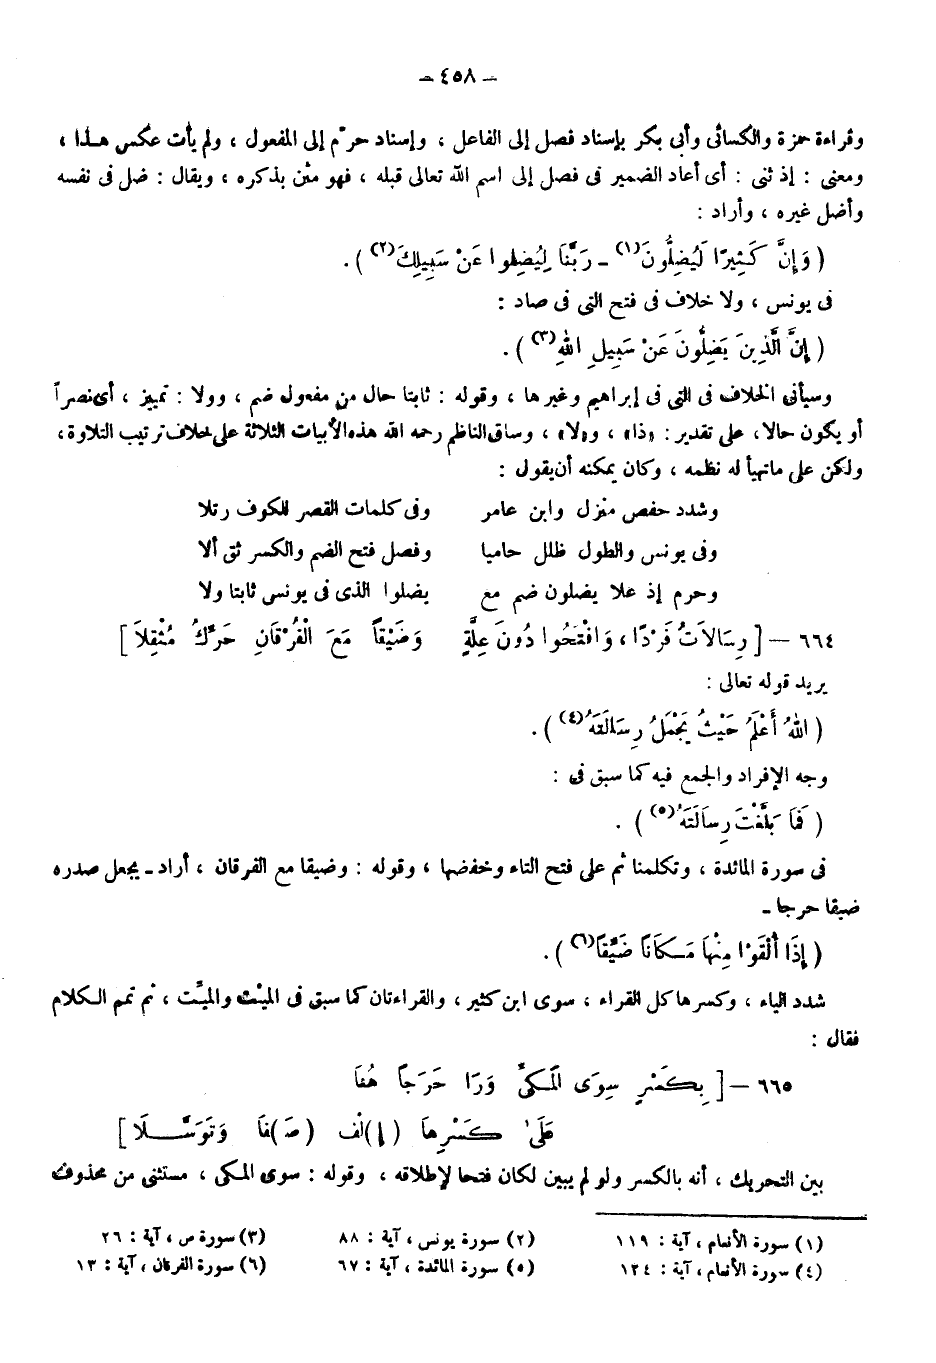 – ٤٥٨ –
وقراءة حمزة والكسائى وأبى بكر بإسناد فصل إلى الفاعل ، وإسناد حرّم إلى المفعول ، ولم يأت عكس هـذا ،
ومعنى : إذ ثنى : أى أعاد الضمير فى فصل إلى اسم الله تعالى قبله ، فهو مثن بذكره ، ويقال : ضل فى نفسه
وأضل غيره ، وأراد :
( وَإِنَّ كَثِيرًا لَيُضِلُّونَ(١) ـ رَبَّنَا لِيُضِلوا عَنْ سَبِيلِكَ(٢) ) .
فى يونس ، ولا خلاف فى فتح التى فى صاد :
( إِنَّ الَّذِينَ يَضِلُّونَ عَنْ سَبِيلِ اللهِ(٣) ) .
وسيأتى الخلاف فى التى فى إبراهيم وغيرها ، وقوله : ثابتا حال من مفعول ضم ، وولا : تمييز ، أى نصراً
أو يكون حالا، على تقدير : «ذا» ، و«لا» ، وساق الناظم رحمه الله هذه الأبيات الثلاثة على خلاف ترتيب التلاوة،
ولكن على ماتهيأ له نظمه ، وكان يمكنه أن يقول :
وشدد حفص منزل وابن عامر وفى كلمات القصر للكوف رتلا
وفى يونس والطول ظلل حاميا وفصل فتح الضم والكسر ثق ألا
وحرم إذ علا يضلون ضم مع يضلوا الذى فى يونس ثابتا ولا
٦٦٤ – [ رِسَالَاتُ فَرْدًا ، وَافْتَحُوا دُونَ عِلَّةٍ وَضَيْقاً مَعَ الْفُرْقَانِ حَرِّكْ مُثْقِلاَ ]
يريد قوله تعالى :
( اللهُ أَعْلَمُ حَيْثُ يَجْعَلُ رِسَالَتَهُ(٤) ) .
وجه الإفراد والجمع فيه كما سبق فى :
( فَمَا بَلَّغْتَ رِسَالَتَهُ(٥) ) .
فى سورة المائدة ، وتكلمنا ثم على فتح التاء وخفضها ، وقوله : وضيقا مع الفرقان ، أراد ـ يجعل صدره
ضيقا حرجا ـ
( إِذَا أُلْقَوْا مِنْهَا مَكَانًا ضَيِّقاً(٦) ) .
شدد الياء ، وكسرها كل القراء ، سوى ابن كثير ، والقراءتان كما سبق فى الميْت والميِّت ، ثم تمم الكلام
فقال :
٦٦٥ – [ بِكَسْرٍ سِوَى المَكِّىِّ وَرَا حَرَجاً هُنَا
عَلَى كَسْرِهَا (إِ)لْف (صَ)فَا وَتَوَسَّلَا ]
بين التحريك ، أنه بالكسر ولو لم يبين لكان فتحا لإطلاقه ، وقوله : سوى المكى ، مستثنى من محذوف
(١) سورة الأنعام ، آية : ١١٩ (٢) سورة يونس ، آية : ٨٨ (٣) سورة ص ، آية : ٢٦
(٤) سورة الأنعام ، آية : ١٢٤ (٥) سورة المائدة ، آية : ٦٧ (٦) سورة الفرقان ، آية : ١٣